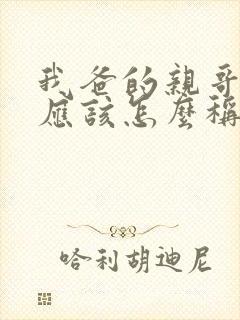 我爸的親哥
應該怎麼稱
哈利胡迪尼